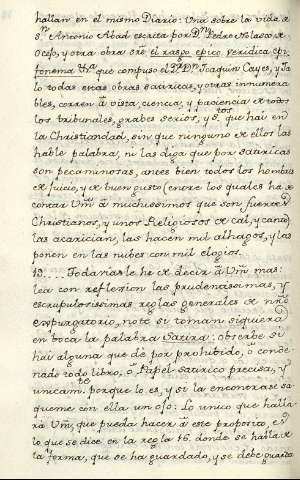 hallan en el mismo Diario: Una sobre la vida de
Sn. Antonio Abad escrita por Dn. Pedro Nolasco de
Ocejo, y otra obra sre. el rasgo epico, veridica epi-
fonema, &a. que compuso el Dn. Joaquin Cases, y Ja-
lo todas estas obras satiricas, y otras innumera-
bles, corren à vista, ciencia, y paciencia de todos
los tribunales, grabes serios, y de que hai en
la Christiandad, sin que ninguno de ellos las
hable palabra, ni las diga que por satiricas
son pecaminosas, antes bien todos los hombres
de juicio, y de buen gusto (entre los quales ha de
contar Um. à muchissimos que son fuertes
Christianos, y unos Religiosos de cal, y canto)
las acarician, las hacen mil alhagos, y las
ponen en las nubes con mil elogios.
Todavia le he de decir à Um. mas:
lea con reflexion las prudentissimas, y
escrupulosissimas reglas generales de nro.
expurgatorio, note si toman siquiera
en boca la palabra Satira: observe si
hai alguna que dè por prohibido, ò conde-
nado todo libro, ò Papel satirico precisa, y
unicamte. porque lo es, y si la encontrase sa-
queme con ella un ojo: Lo unico que halla-
rà Um. que pueda hacer à este proposito, es
lo que se dice en la regla 16. donde se halla
la forma, que se ha guardado, y se debe guarda